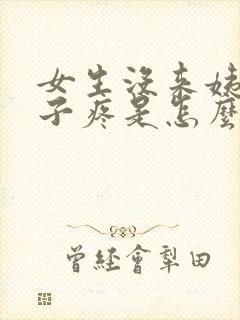 女生沒來姨
子疼是怎麼
曾經會犁田